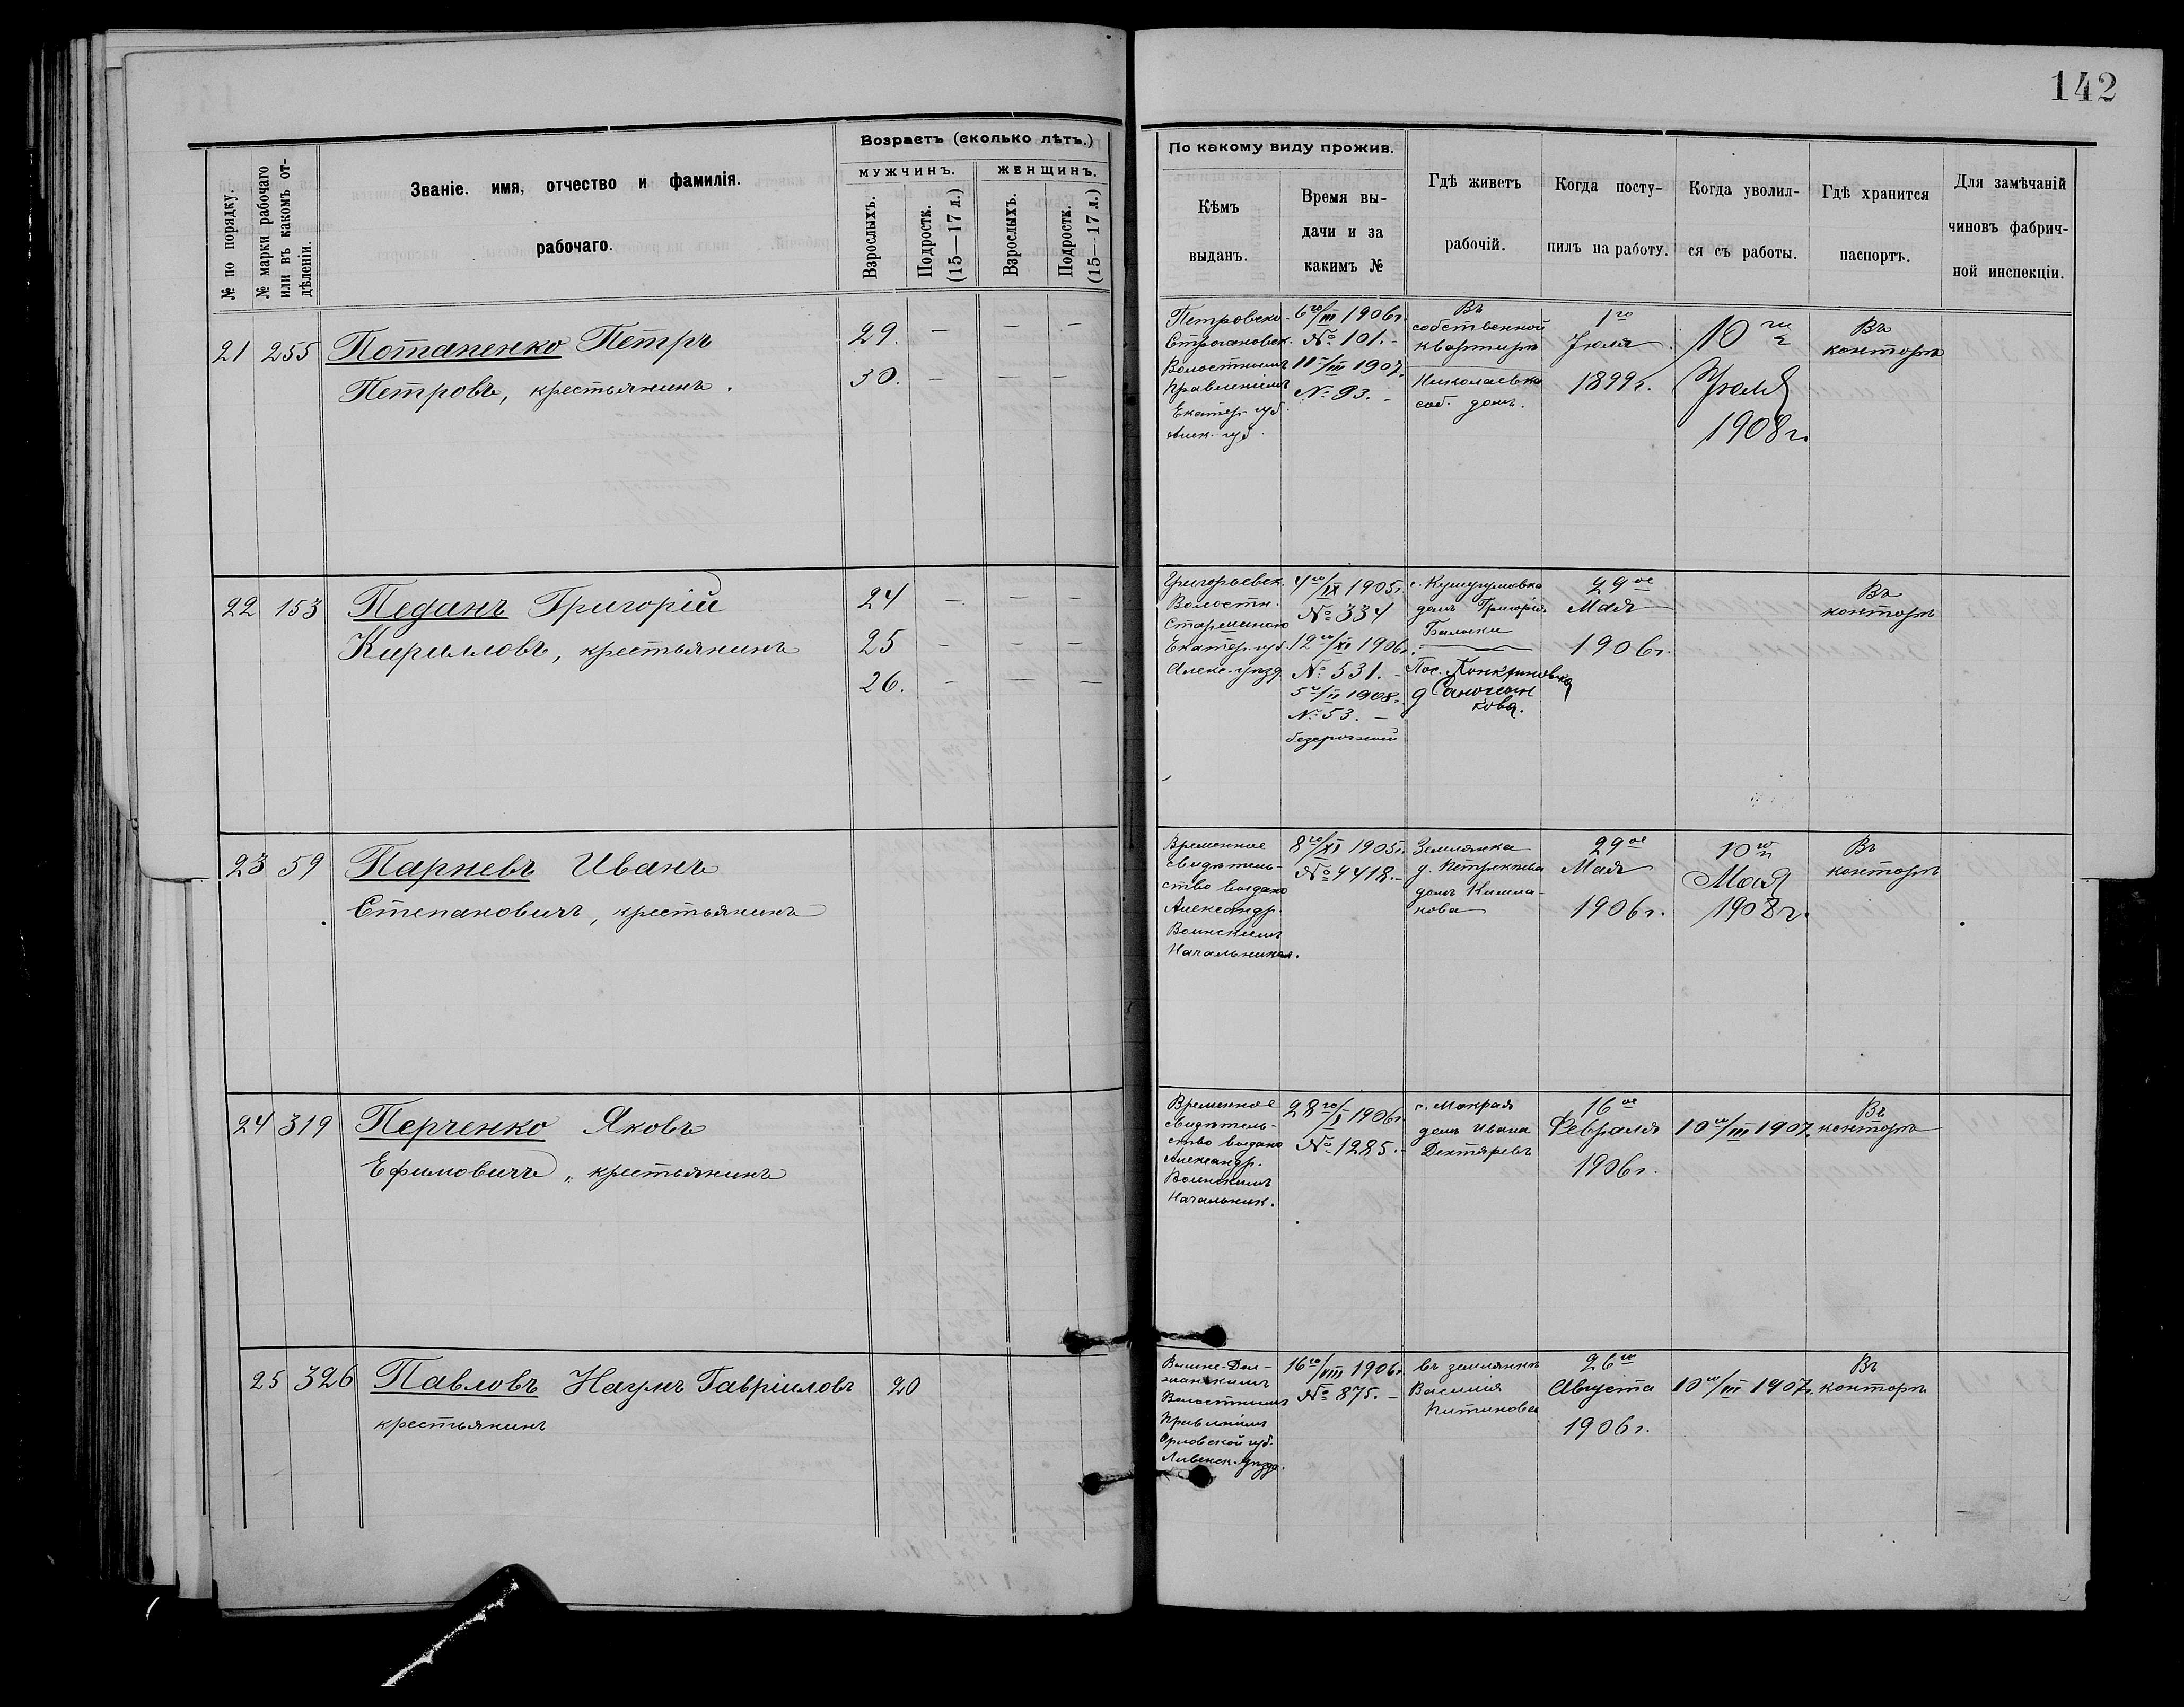 142
№ по порядку.
№ марки рабочаго или въ какомъ отдѣленіи.
Званіе. имя, отчество и фамилія.
рабочаго.
Возрастъ (сколько лѣтъ.)
МУЖЧИНЪ.
ЖЕНЩИНЪ.
Взрослыхъ.
Подростк. (15—17 л.)
Взрослыхъ.
Подростк. (15—17 л.)
По какому виду прожив.
Кѣмъ
выданъ.
Время вы-
дачи и за
какимъ №
Гдѣ живетъ
рабочій.
Когда посту-
пилъ на работу.
Когда уволил-
ся съ работы.
Гдѣ хранится
паспортъ.
Для замѣчаній
чиновъ фабрич-
ной инспекціи.
21 255 Потапенко Петръ
Петровъ, крестьянинъ.
29. — — —
30. — — —
Петровско-
Строгановск.
Волостнымъ
Правленіемъ
Екатер. губ.
6го/III 1906г.
№ 101. -
11го/III 1907.
№ 93. -
Въ
собственной
квартирѣ
Николаевка
соб. домъ.
1го
Іюля
1899г.
10го
Іюля
1908г.
Въ
конторѣ
22 153 Педанъ Григорій
Кирилловъ, крестьянинъ
24 — — —
25 — — —
26. — — —
Григорьевск.
Волостн.
Старшиною
Екатер. губ.
Алекс. уѣзд.
4го/IX 1905г.
№ 334
12го/XI 1906г.
№ 531. -
5го/II 1908г.
№ 53. —
безсрочный
с. Кушугумовка
домъ Григорія
Балыки
Пос.
29ое
Мая
1906г.
Въ
конторѣ
23 59 Парневъ Иванъ
Степановичъ, крестьянинъ
Временное
свидѣтель-
ство выдано
Александр.
Воинскимъ
Начальником.
8го/XI 1905г.
№ 9418. -
Землянка
домъ
29ое
Мая
1906г.
10го
Мая
1908г.
Въ
конторѣ
24 319 Перченко Яковъ
Ефимовичъ, крестьянинъ
Временное
Свидѣтель-
ство выдано
Александр.
Воинскимъ
Начальник.
28го/I 1906г.
№ 1285. -
с. Мокрая
домъ Ивана
Дектяревъ
16ое
Февраля
1906г.
10го/III 1907г.
Въ
конторѣ
25 326 Павловъ Наумъ Гавріиловъ
крестьянинъ
20
Волостнымъ
Правленіемъ
Орловской губ.
Ливенск. Уѣзда.
16го/VIII 1906г.
№ 875. —
въ землянкѣ
Василія
26го
Августа
1906г.
10го/III 1907г.
Въ
конторѣ